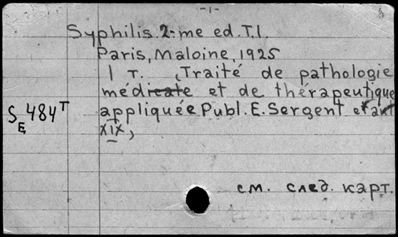 -1-
Syphilis. 2-me ed. T.I.
Paris, Maloine, 1925
1 т. , Traité de pathologie
médicale et de thérapeutique
S E 484 T appliquée Publ. E. Sergent et aut
XIX,
см. след. карт.